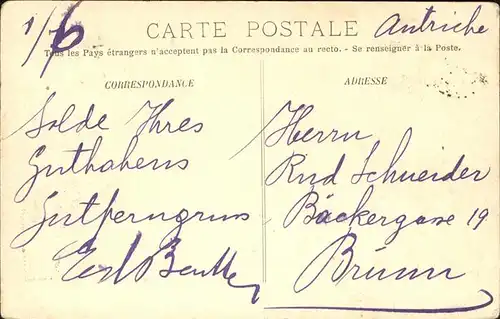 1/6
CARTE POSTALE
Autriche
Tous les Pays étrangers n'acceptent pas la Correspondance au recto. - Se renseigner à la Poste.
CORRESPONDANCE
Solde Ihres
Guthabens
Gutferngruss
ADRESSE
Herrn
Rud Schneider
Bäckergasse 19
Brünn